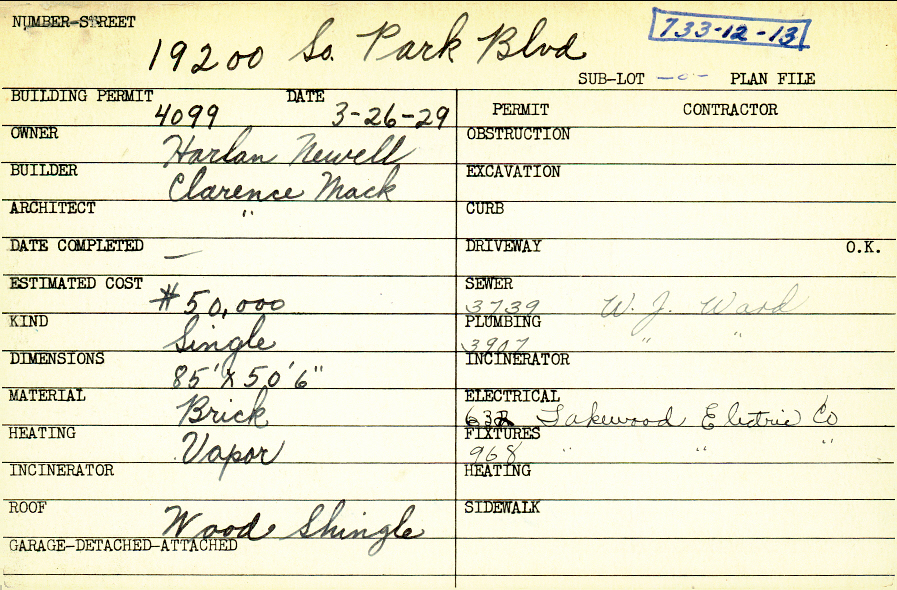 NUMBER-STREET
19200 So. Park Blvd
733-12-13
SUB-LOT -0- PLAN FILE
BUILDING PERMIT 4099 DATE 3-26-29
PERMIT CONTRACTOR
OWNER Harlan Newell
OBSTRUCTION
BUILDER Clarence Mack
EXCAVATION
ARCHITECT "
CURB
DATE COMPLETED —
DRIVEWAY O.K.
ESTIMATED COST $50,000
SEWER 3739 W. J. Ward
KIND Single
PLUMBING 3907 " "
DIMENSIONS 85' X 50'6"
INCINERATOR
MATERIAL Brick
ELECTRICAL Lakewood Electric Co
HEATING Vapor
FIXTURES 968 " " "
INCINERATOR
HEATING
ROOF Wood Shingle
SIDEWALK
GARAGE-DETACHED-ATTACHED